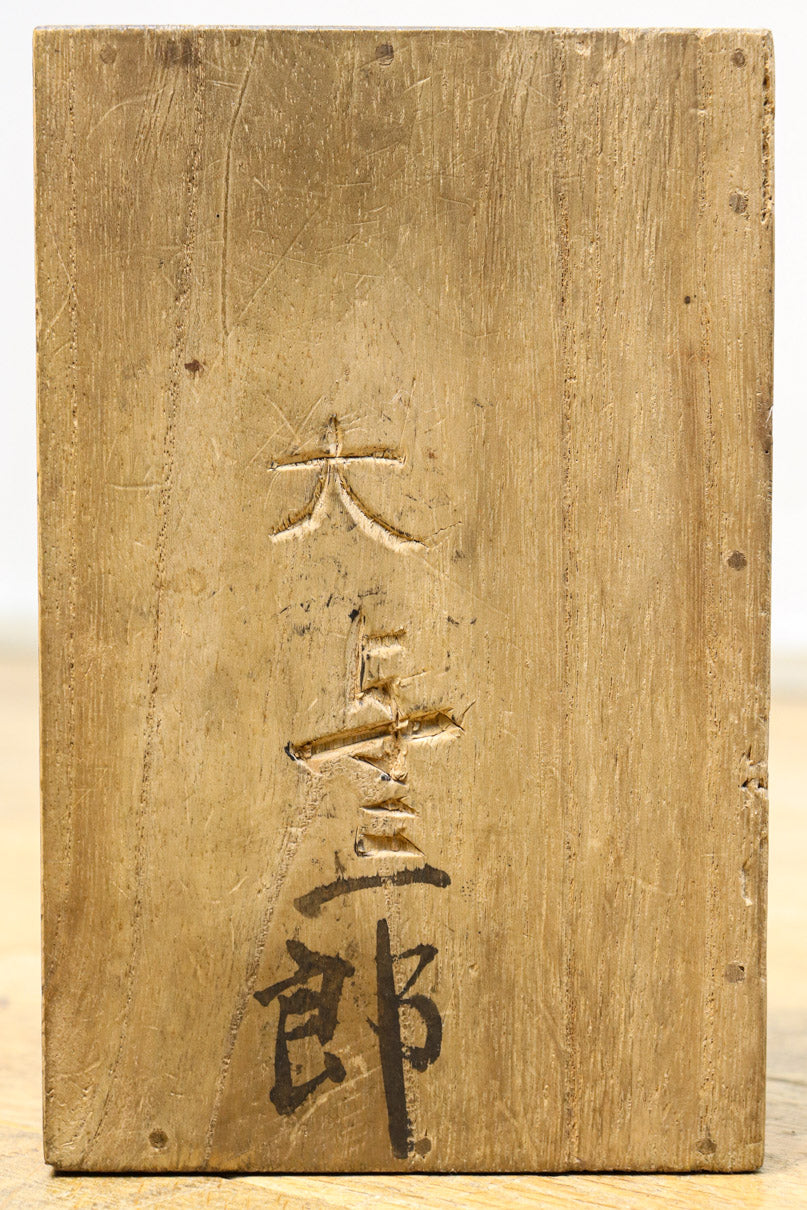 大一郎